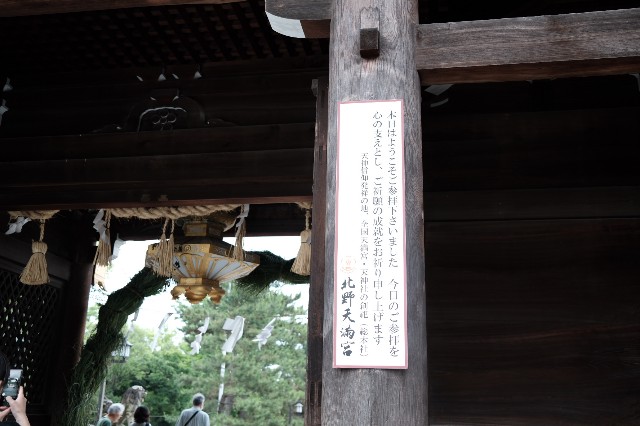 本日はようこそご参拝下さいました 今日のご参拝を
心の支えとし、ご祈願の成就をお祈り申し上げます
天神信仰発祥の地、全国天満宮・天神社の創祀（総本社）
北野天満宮